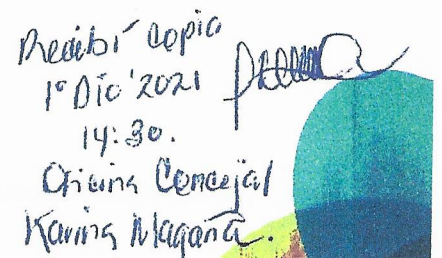 Recibí copia
1° Dic '2021
14:30.
Oficina Concejal
Karina Magaña.